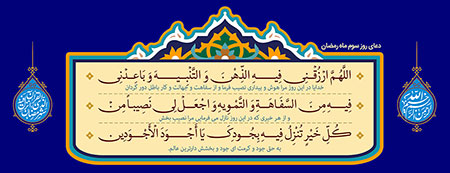 دعای روز سوم ماه رمضان
اللَّهُمَّ ارْزُقْنِي فِيهِ الذِّهْنَ وَ التَّنْبِيهَ وَ بَاعِدْنِي
خدایا در این روز مرا هوش و بیداری نصیب فرما و از سفاهت و جهالت و کار باطل دور گردان
فِيهِ مِنَ السَّفَاهَةِ وَ التَّمْوِيهِ وَ اجْعَلْ لِي نَصِيباً مِنْ
و از هر خیری که در این روز نازل می فرمایی مرا نصیب بخش
كُلِّ خَيْرٍ تُنْزِلُ فِيهِ بِجُودِكَ يَا أَجْوَدَ الْأَجْوَدِينَ
به حق جود و کرمت ای جود و بخشش دارترین عالم.